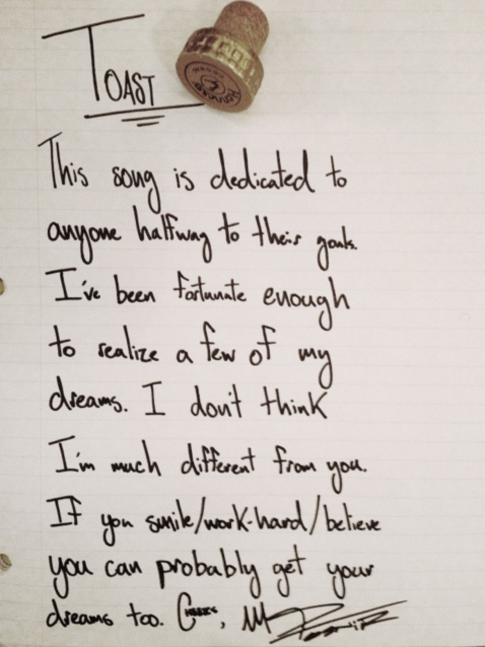 TOAST
This song is dedicated to
anyone halfway to their goals.
I've been fortunate enough
to realize a few of my
dreams. I don't think
I'm much different from you.
If you smile/work-hard/believe
you can probably get your
dreams too. Cheers,